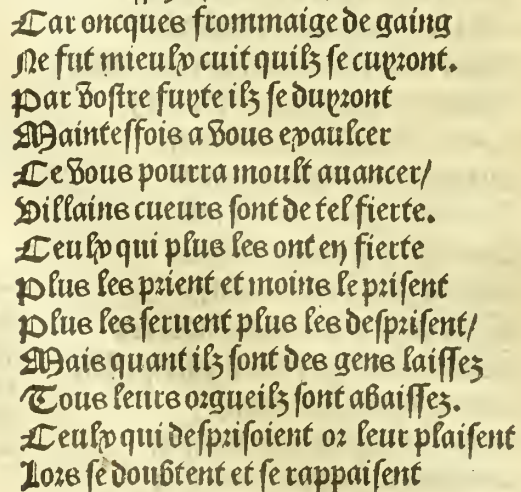 Car oncques frommaige de gaing
Ne fut mieulx cuit quilz se cuyront.
Par vostre fuyte ilz se duyront
Maintesfois a vous exaulcer
Ce vous pourra moult auancer/
Villains cueurs sont de tel fierte.
Ceulx qui plus les ont en fierte
Plus les prient et moins le prisent
Plus les seruent plus les desprisent/
Mais quant ilz sont des gens laissez
Tous leurs orgueilz sont abaissez.
Ceulx qui desprisoient or leur plaisent
Lors se doubtent et se rappaisent